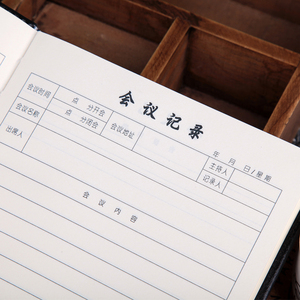 会议记录
年 月 日/星期
会议时间 点 分开会 点 分闭会 会议地址 主持人
会议名称 记录人
出席人
会议内容